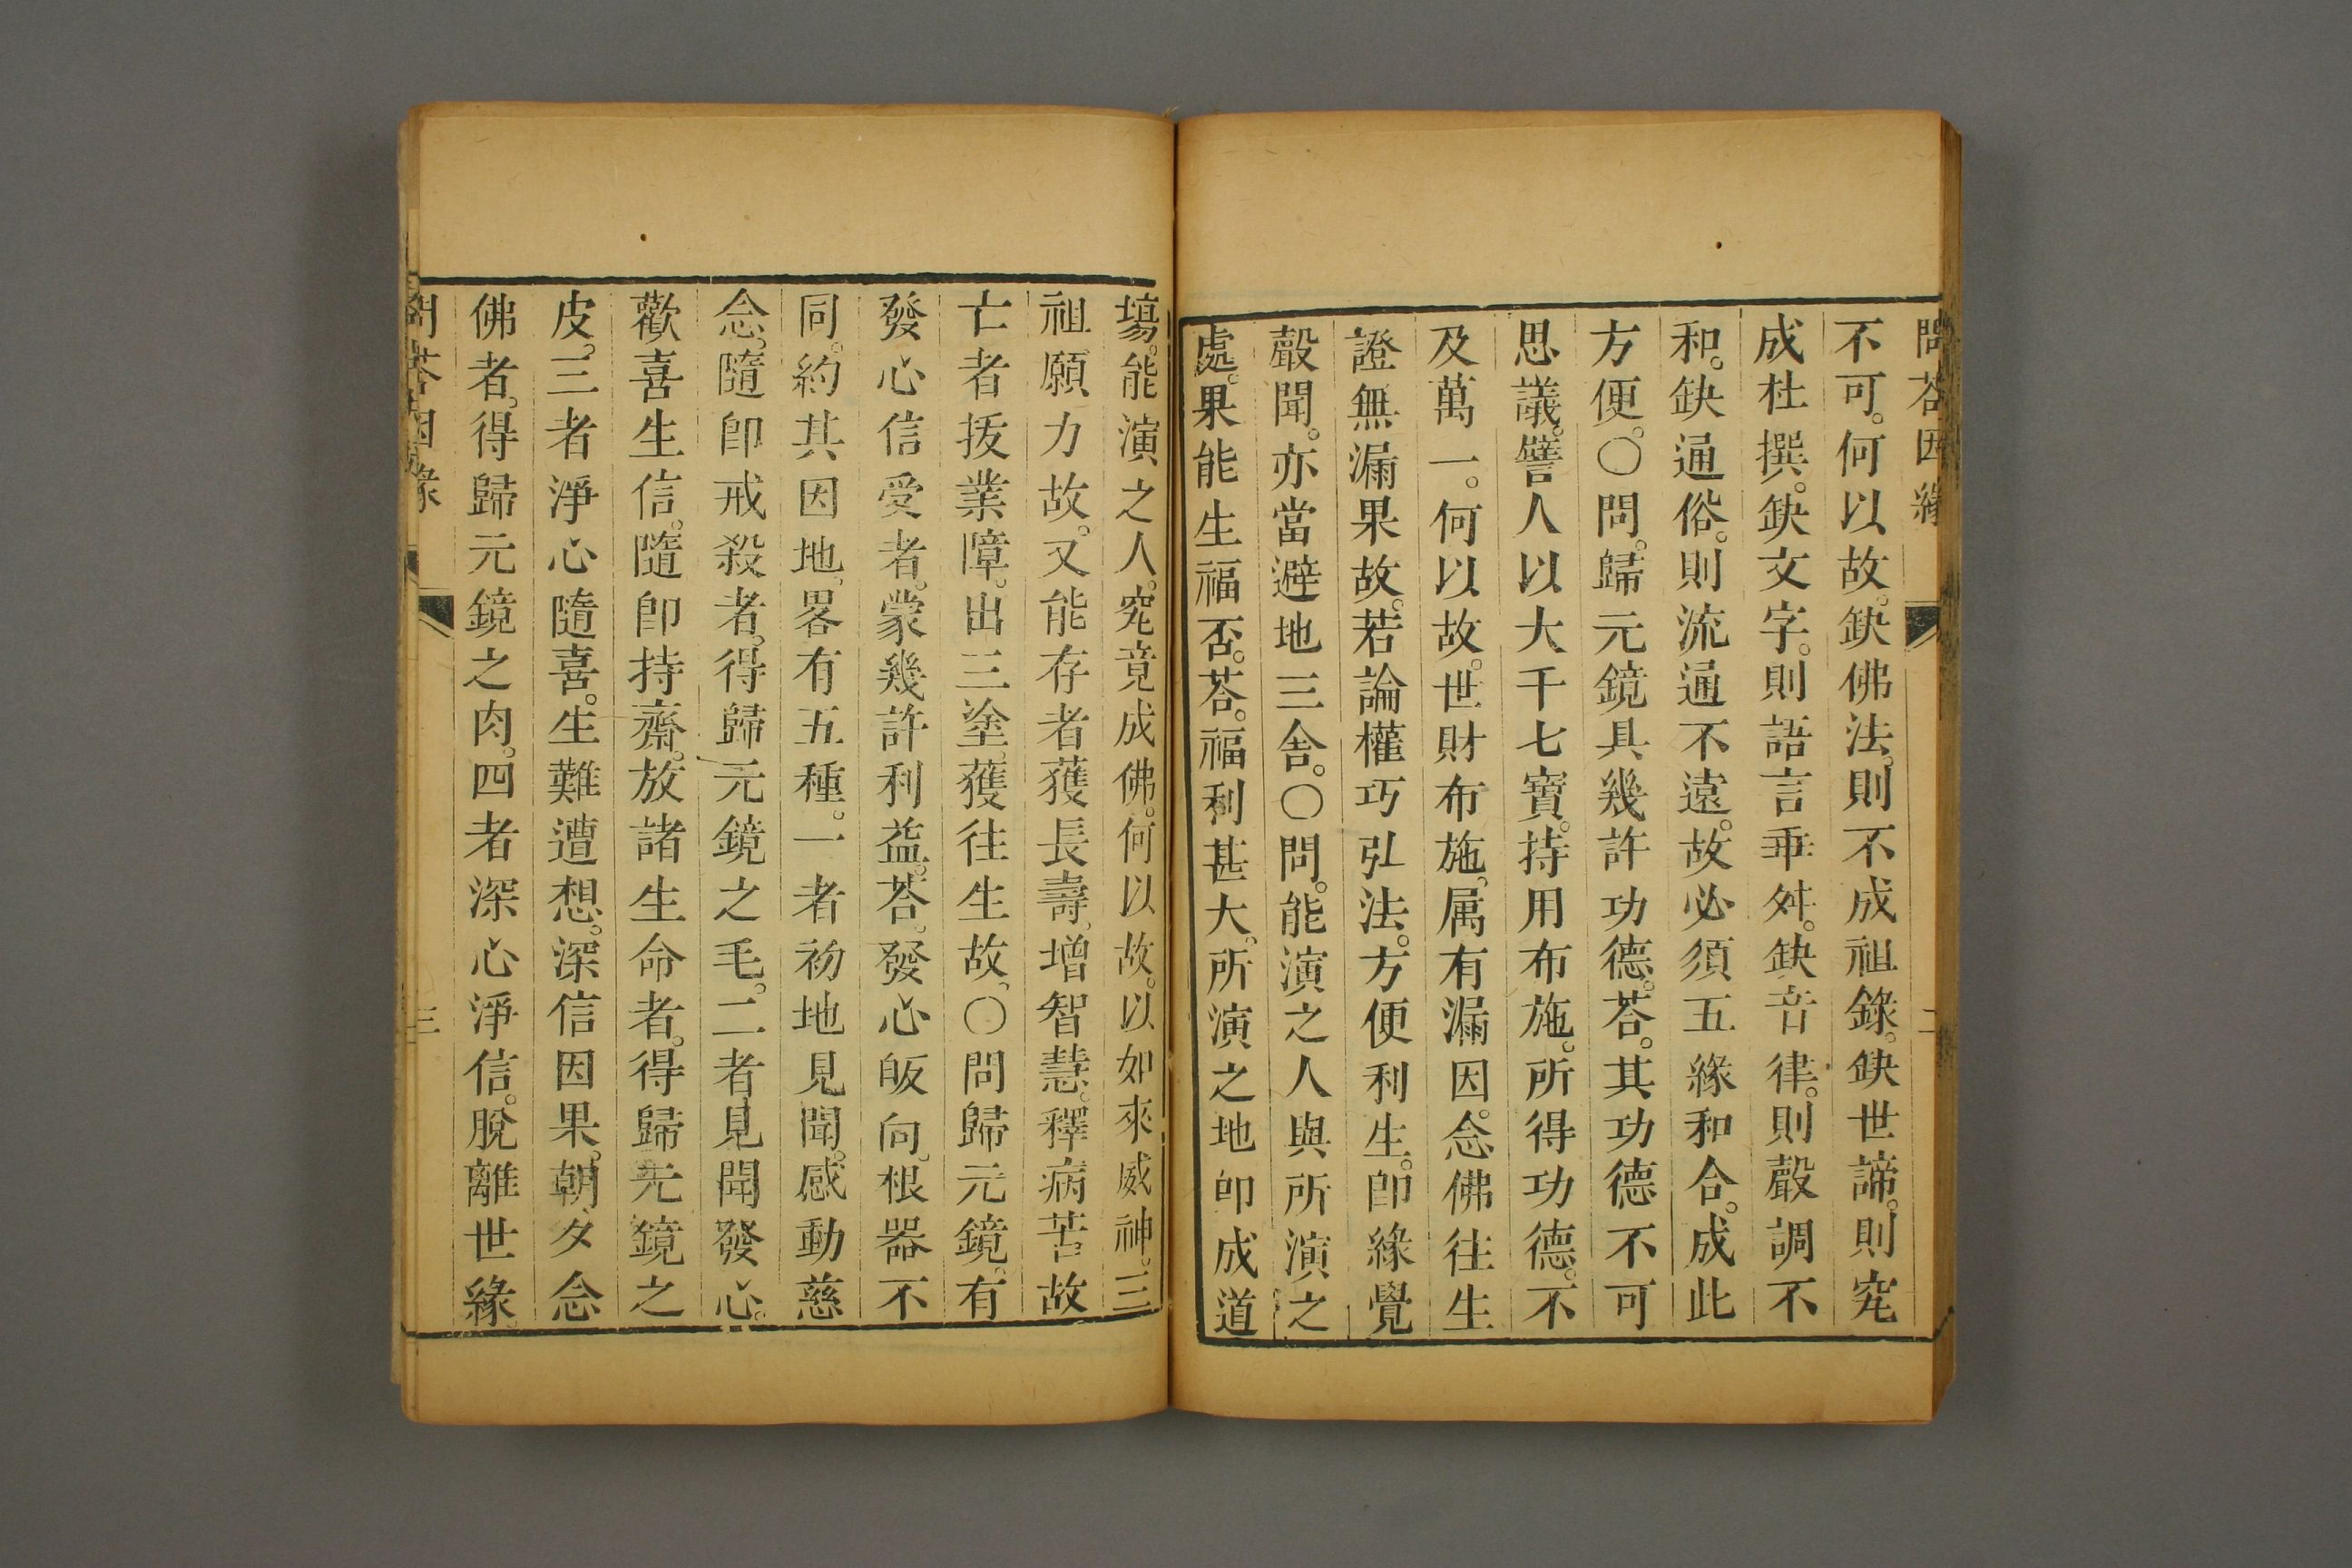 問荅因緣
二
不可。何以故。缺佛法。則不成祖錄。缺世諦。則究
成杜撰。缺文字。則語言乖舛。缺音律。則聲調不
和。缺通俗。則流通不遠。故必須五緣和合。成此
方便。〇問。歸元鏡具幾許功德。荅。其功德不可
思議。譬人以大千七寶。持用布施。所得功德。不
及萬一。何以故。世財布施。属有漏因。念佛往生
證無漏果故。若論權巧弘法。方便利生。即緣覺
聲聞。亦當避地三舍。〇問。能演之人與所演之
處。果能生福否。荅。福利甚大。所演之地即成道
塲。能演之人。究竟成佛。何以故。以如來威神。三
祖願力故。又能存者獲長壽。增智慧。釋病苦故
亡者拔業障。出三塗。獲往生故。〇問歸元鏡。有
發心信受者。蒙幾許利益。荅。發心皈向。根器不
同。約其因地。畧有五種。一者初地見聞。感動慈
念。隨即戒殺者。得歸元鏡之毛。二者見聞發心。
歡喜生信。隨即持齋。放諸生命者。得歸元鏡之
皮。三者淨心隨喜。生難遭想。深信因果。朝夕念
佛者。得歸元鏡之肉。四者深心淨信。脫離世緣
問荅因緣
三